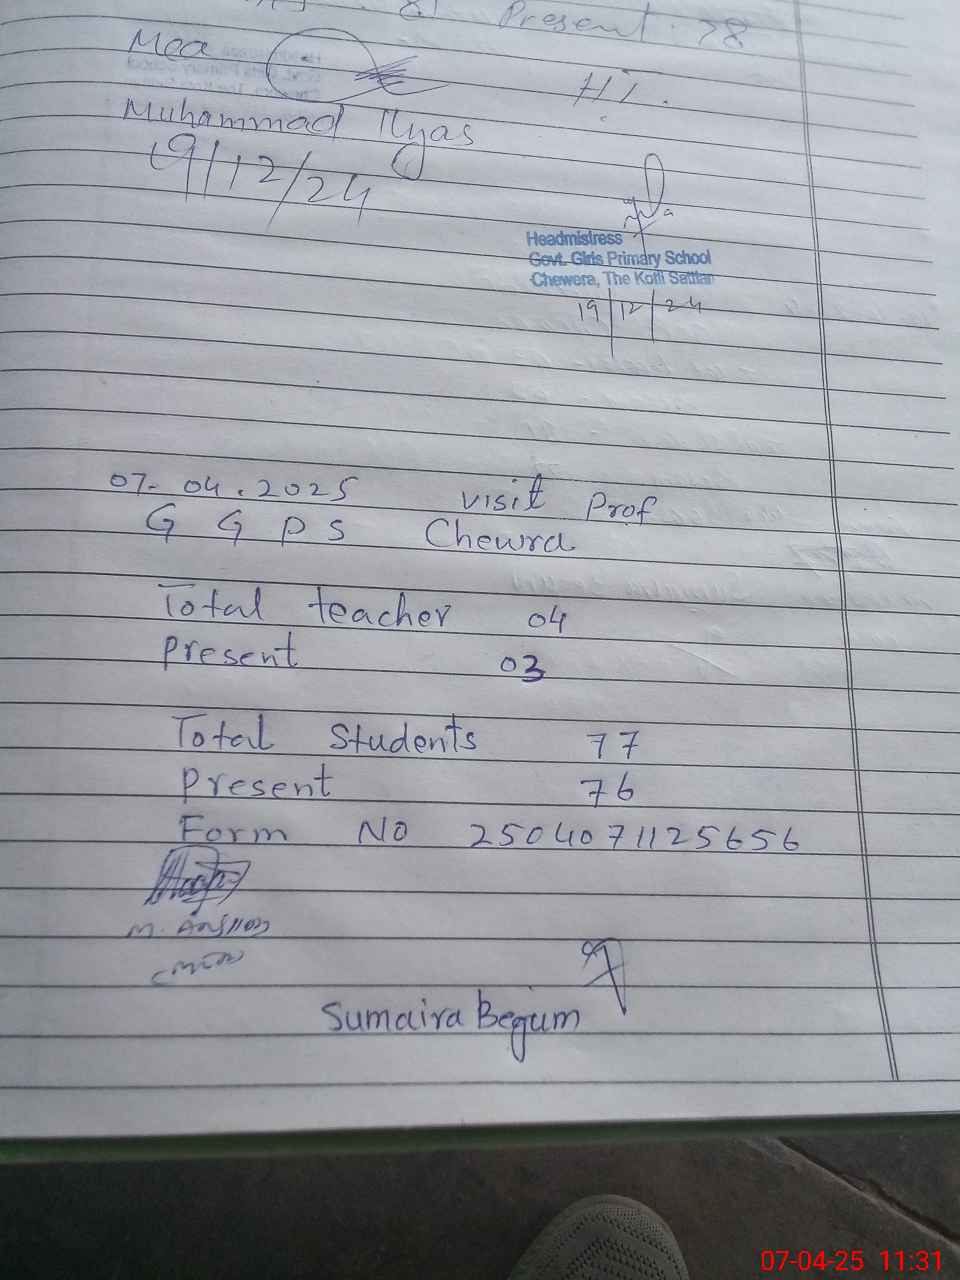 Present 78
Mea
H.T.
Muhammad Ilyas
19/12/24
Headmistress
Govt. Girls Primary School
Chewera, The Kotli Sattian
19/12/24
07-04.2025 visit Prof
G G P S Chewra
Total teacher 04
Present 03
Total Students 77
Present 76
Form No 2504071125656
M.
Sumaira Begum
07-04-25 11:31